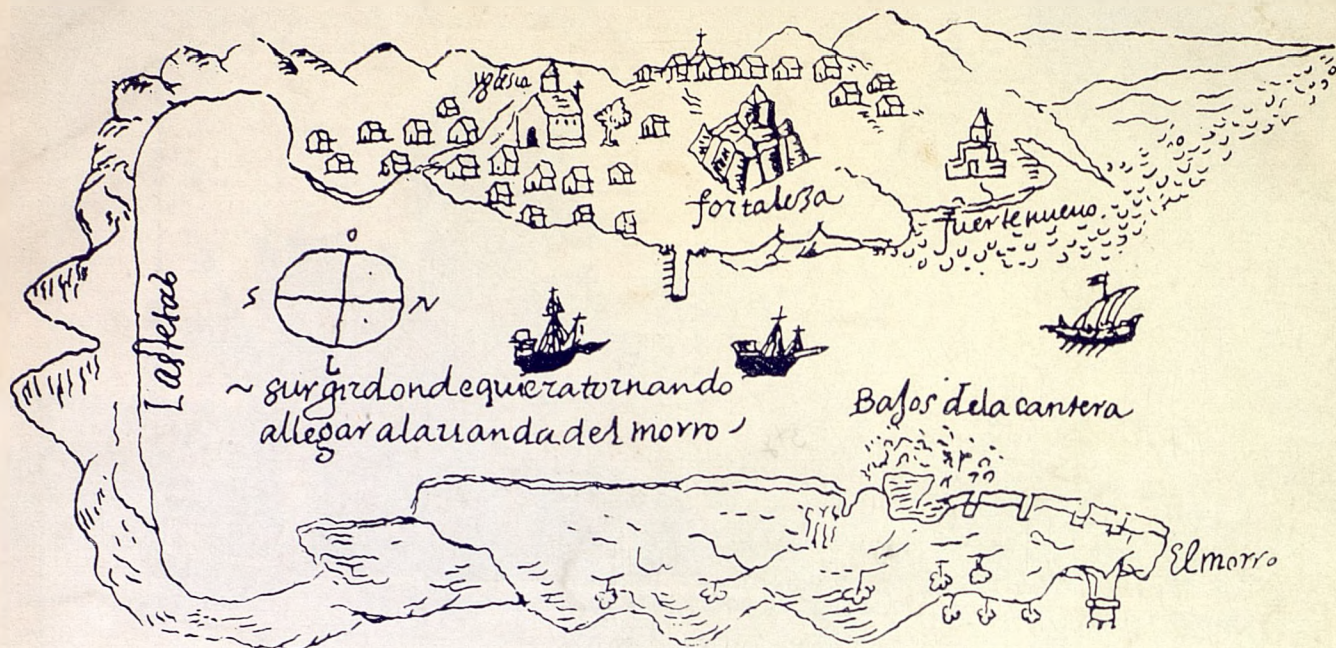 yglesia
fortaleza
fuerte nueuo
O
S
N
L
Las tetas
~ surgir donde quiera tornando
allegar a la uanda del morro
Bajos de la cantera
El morro